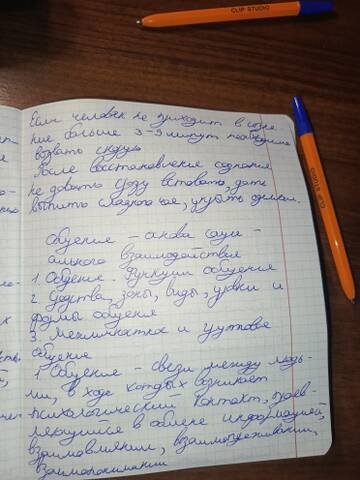 CLIP STUDIO
CLIP STUDIO
Если человек не приходит в созна-
ние больше 3-5 минут необходимо
вызвать скорую
После восстановление сознания
не давать сразу вставать, дать
выпить сладкого чая, укрыть одеялом.
Общение - основа соци-
ального взаимодействия
1. Общение. Функции общения
2. Средства, зоны, виды, уровни и
формы общения
3. Межличностное и групповое
общение
1. Общение - связи между людь-
ми, в ходе которых возникает
психологический контакт, прояв-
ляющийся в обмене информацией,
взаимовлиянии, взаимопереживании,
взаимопонимании